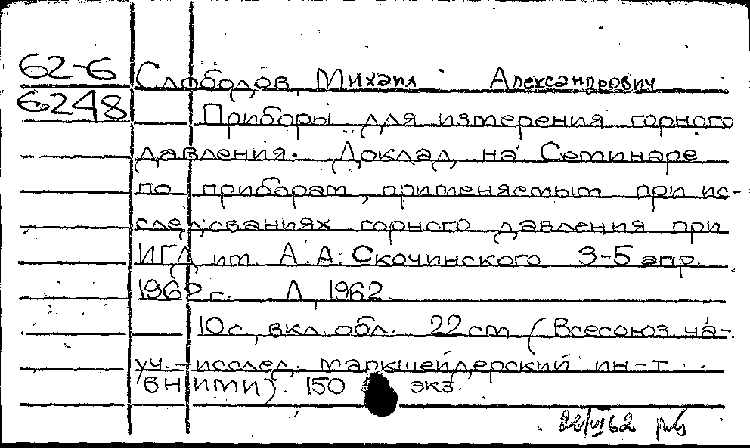 62-6 Слободов, Михаил Александрович
6248 Приборы для измерения горного
давления. Доклад на Семинаре
по приборам, применяемым при ис-
следованиях горного давления при
ИГД им. А.А. Скочинского 3-5 апр.
1962 г. Л, 1962.
10 с., вкл. обл. 22 см (Всесоюз. на-
уч.-исслед. маркшейдерский ин-т
ВНИМИ). 150 экз.
22/VI 62